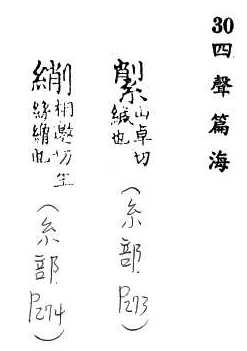 30
四聲篇海
山卓切
緘也
（糸部
P273）
相邀切生
絲繒也
（糸部
P274）